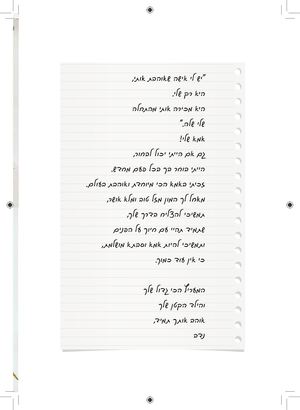 "יש לי אישה שאוהבת אותי,
היא רק שלי.
היא מכירה אותי מהתחלה
שלי שלה."
אמא שלי!
גם אם הייתי יכול לבחור,
הייתי בוחר בך בכל פעם מחדש.
זכיתי באמא הכי מיוחדת ואוהבת בעולם.
מאחל לך המון מזל טוב ומלא אושר,
תמשיכי להצליח בדרך שלך,
שתמיד תהיי עם חיוך על הפנים
ותמשיכי להיות אמא וסבתא מושלמת,
כי אין עוד כמוך.
המעריץ הכי גדול שלך
והילד הקטן שלך
אוהב אותך תמיד,
נדב